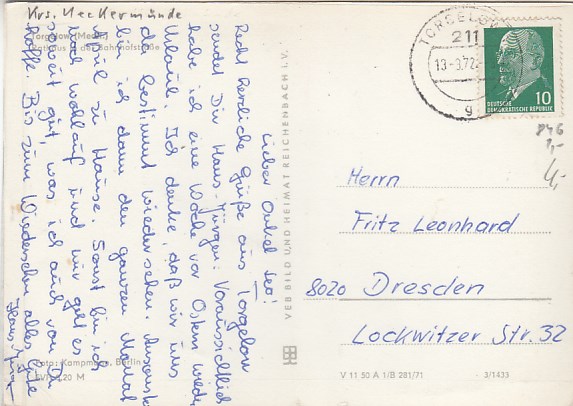 Krs. Ueckermünde
Torgelow (Meckl.)
Rathaus in der Bahnhofstraße
Lieber Onkel Leo!
Recht herzliche Grüße aus Torgelow
sendet Dir Hans-Jürgen. Voraussichtlich
habe ich eine Woche vor Ostern wieder
Urlaub. Ich denke, daß wir uns
da bestimmt wiedersehen.
bin ich dann den ganzen Monat
April zu Hause. Sonst bin ich
noch wohlauf und mir geht es
soweit gut, was ich auch von Dir
hoffe. Bis zum Wiedersehn alles Gute
Hans-Jürgen
Foto: Kampmann, Berlin
0,20 M
VEB BILD UND HEIMAT REICHENBACH I. V.
TORGELOW
211
13-3.72
g
DEUTSCHE
DEMOKRATISCHE REPUBLIK
10
846
1,-
4,-
Herrn
Fritz Leonhard
8020 Dresden
Lockwitzer Str. 32
V 11 50 A 1/B 281/71
3/1433